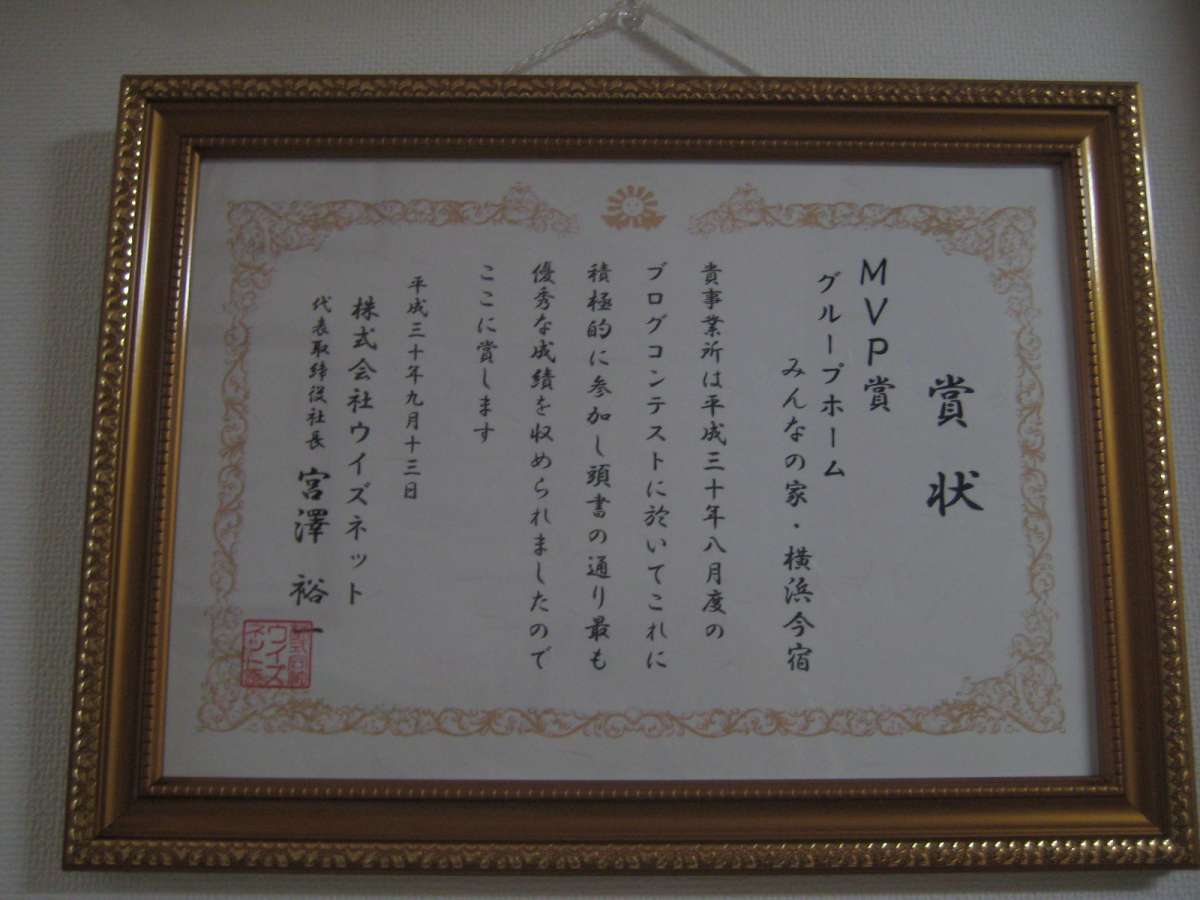 賞状
MVP賞
グループホーム
みんなの家・横浜今宿
貴事業所は平成三十年八月度の
ブログコンテストに於いてこれに
積極的に参加し頭書の通り最も
優秀な成績を収められましたので
ここに賞します
平成三十年九月十三日
株式会社ウイズネット
代表取締役社長 宮澤裕一
株式会社
ウイズ
ネット